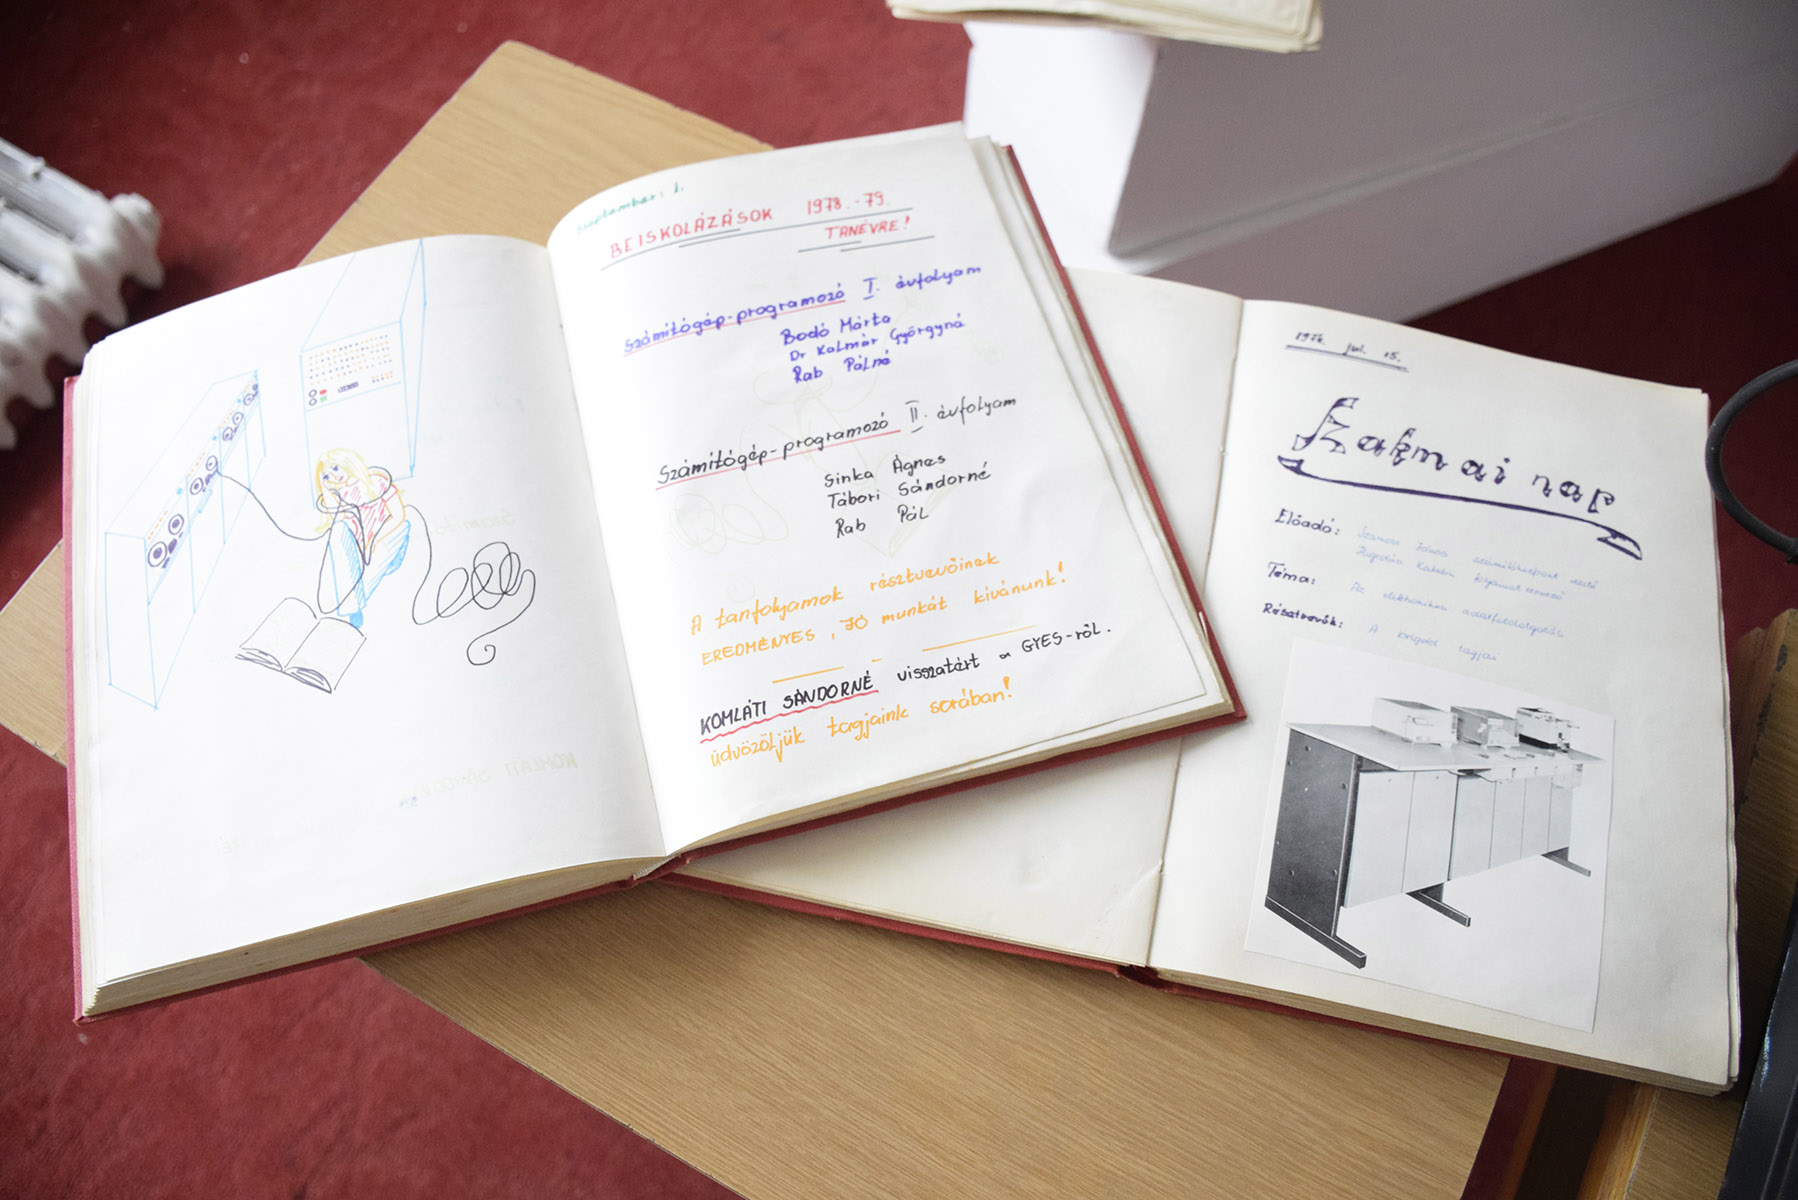 szeptember: 1.
BEISKOLÁZÁSOK 1978.-79.
TANÉVRE!
Számítógép-programozó I. évfolyam
Bodó Márta
Dr Kalmár Györgyné
Rab Pálné
Számítógép-programozó II. évfolyam
Sinka Ágnes
Tábori Sándorné
Rab Pál
A tanfolyamok résztvevőinek
EREDMÉNYES, JÓ munkát kívánunk!
KOMLÁTI SÁNDORNÉ visszatért a GYES-ről.
üdvözöljük tagjaink sorában!
jul. 15.
Szakmai nap
Előadó: Szamosi János számítóközpont vezető
Katalin
Téma: Az elektronikus adatfeldolgozás
Résztvevők: A brigád tagjai